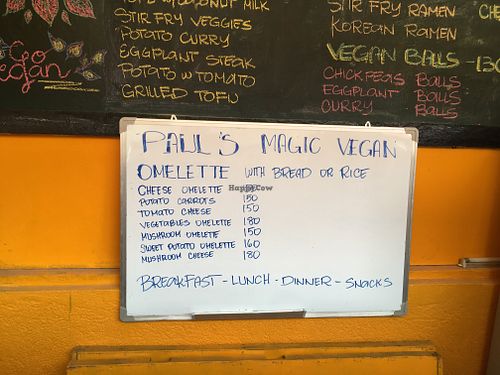 COCONUT MILK
STIR FRY VEGGIES
POTATO CURRY
EGGPLANT STEAK
POTATO W TOMATO
GRILLED TOFU
Go
Vegan
STIR FRY RAMEN
KOREAN RAMEN
VEGAN BALLS - 130
CHICKPEAS BALLS
EGGPLANT BALLS
CURRY BALLS
PAUL'S MAGIC VEGAN
OMELETTE WITH BREAD OR RICE
CHEESE OMELETTE
POTATO CARROTS 150
TOMATO CHEESE 150
VEGETABLES OMELETTE 180
MUSHROOM OMELETTE 150
SWEET POTATO OMELETTE 160
MUSHROOM CHEESE 180
BREAKFAST - LUNCH - DINNER - SNACKS
HappyCow